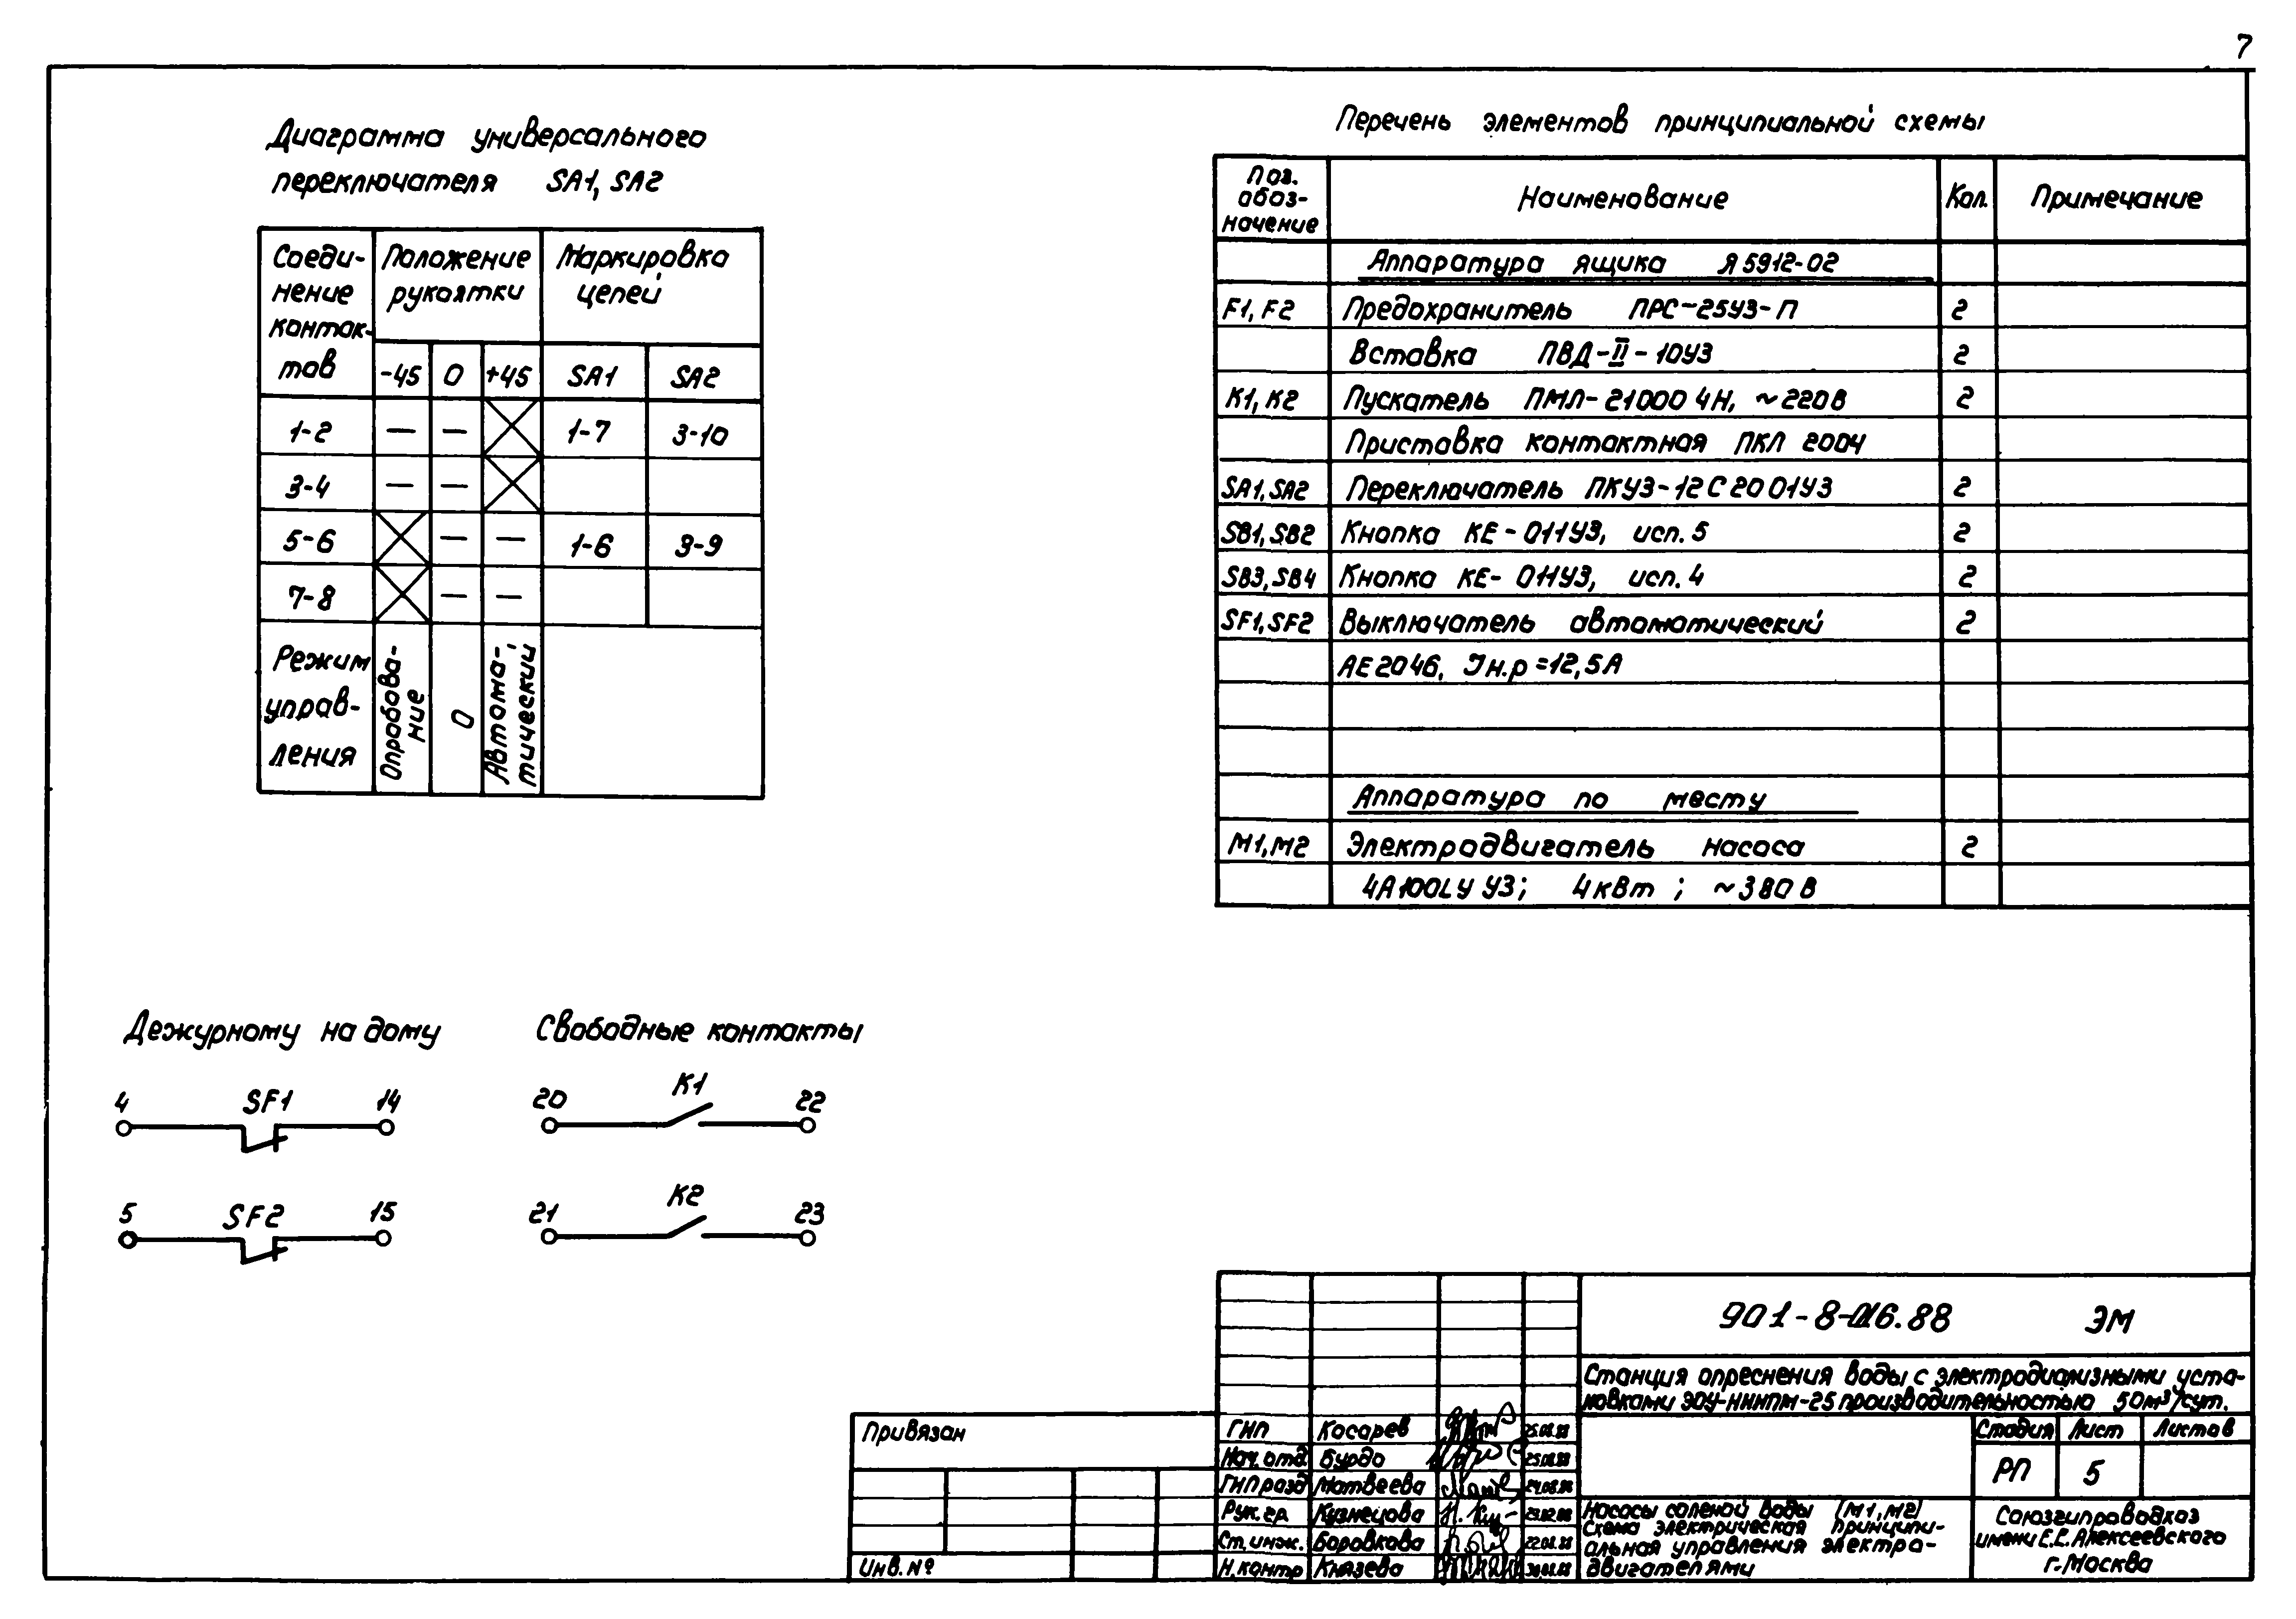 7
Диаграмма универсального
переключателя SA1, SA2
Соеди-
нение
контак-
тов
Положение
рукоятки
Маркировка
цепей
-45 0 +45 SA1 SA2
1-2 — — 1-7 3-10
3-4 — —
5-6 — — 1-6 3-9
7-8 — —
Режим
управ-
ления
Опробова-
ние
0
Автома-
тический
Перечень элементов принципиальной схемы
Поз.
обоз-
начение
Наименование
Кол.
Примечание
Аппаратура ящика Я5912-02
F1, F2 Предохранитель ПРС-25У3-П 2
Вставка ПВД-II-10У3 2
К1, К2 Пускатель ПМЛ-21000 4Н, ~220В 2
Приставка контактная ПКЛ 2004
SA1, SA2 Переключатель ПКУ3-12С20 01У3 2
SB1, SB2 Кнопка КЕ-011У3, исп. 5 2
SB3, SB4 Кнопка КЕ-011У3, исп. 4 2
SF1, SF2 Выключатель автоматический 2
АЕ2046, Iн.р=12,5А
Аппаратура по месту
М1, М2 Электродвигатель насоса 2
4А100LУ У3; 4кВт; ~380В
Дежурному на дому
4 SF1 14
5 SF2 15
Свободные контакты
20 К1 22
21 К2 23
901-8-016.88 ЭМ
Станция опреснения воды с электродиализными уста-
новками ЭОУ-НИИПМ-25 производительностью 50м³/сут.
Привязан
Инв. №
ГИП Косарев 25.08.88
Нач. отд. Бурдо 25.08.88
ГИП разд Матвеева 24.08.88
Рук. гр. Кузнецова
Ст. инж. Боровкова 22.08.88
Н. контр Князева
Стадия Лист Листов
РП 5
Насосы соленой воды (М1, М2)
Схема электрическая принципи-
альная управления электро-
двигателями
Союзгипроводхоз
имени Е.Е. Алексеевского
г. Москва